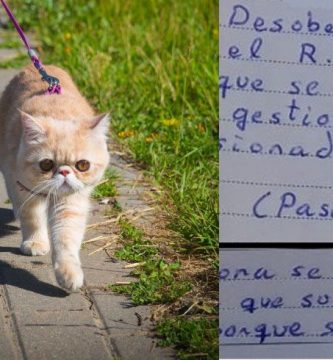 Desobe
el R.
que se
gestio
sionad
(Pas
ona se
que so
porque s